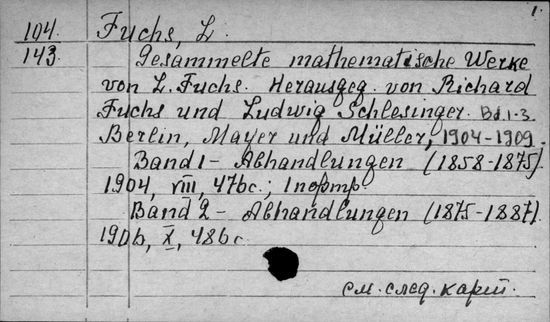 1.
104. Fuchs, L.
143. Gesammelte mathematische Werke
von L. Fuchs. Herausgeg. von Richard
Fuchs und Ludwig Schlesinger. Bd. 1-3.
Berlin, Mayer und Müller, 1904-1909.
Band 1 - Abhandlungen (1858-1875).
1904, VIII, 476 с.; 1 портр.
Band 2 - Abhandlungen (1875-1887).
1906, X, 486 с.
см. след. карт.